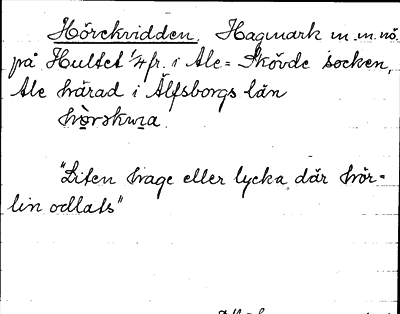 Hörekvidden, Hagmark m.m. nö.
på Hultet 1/4 fr. i Ale-Skövde socken,
Ale härad i Älfsborgs län
"Liten hage eller lycka, där hör-
lin odlats"